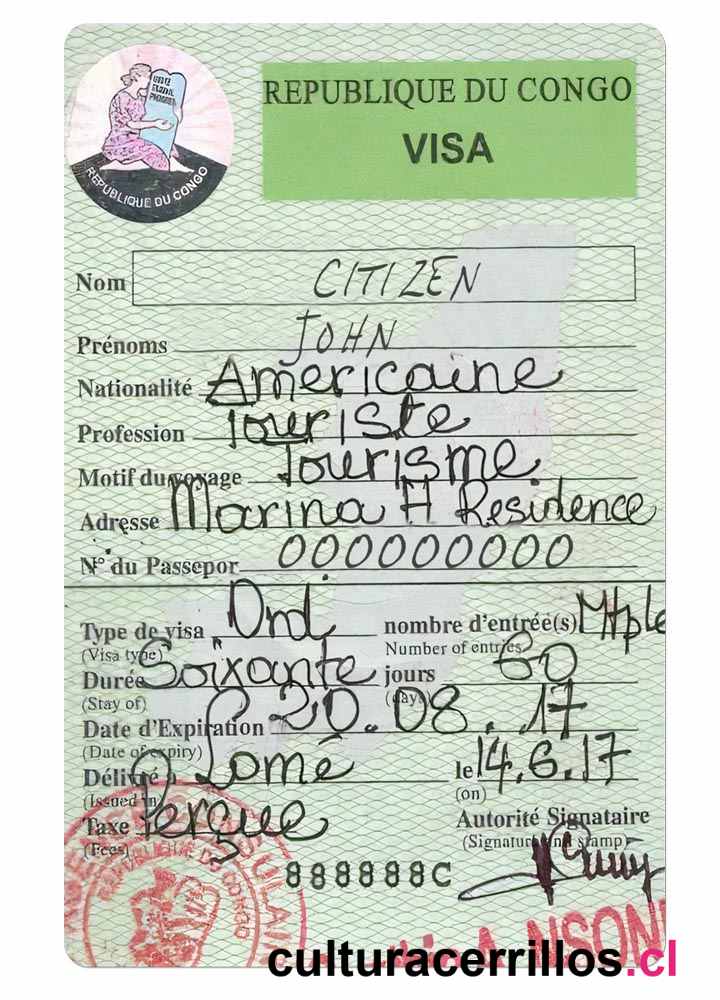 UNITE TRAVAIL PROGRES
REPUBLIQUE DU CONGO
REPUBLIQUE DU CONGO
VISA
Nom CITIZEN
Prénoms JOHN
Nationalité Américaine
Profession Touriste
Motif du voyage Tourisme
Adresse Marina H Residence
N° du Passepor 000000000
Type de visa Ord. nombre d'entrée(s) Mtple
(Visa type) Number of entries
Durée Soixante jours 60
(Stay of) (days)
Date d'Expiration 20.08.17
(Date of expiry)
Délivré à Lomé le 14.6.17
(Issued in) (on)
Taxe Perçue Autorité Signataire
(Fees) (Signature and stamp)
REPUBLIQUE DU CONGO
888888C
culturacerrillos.cl